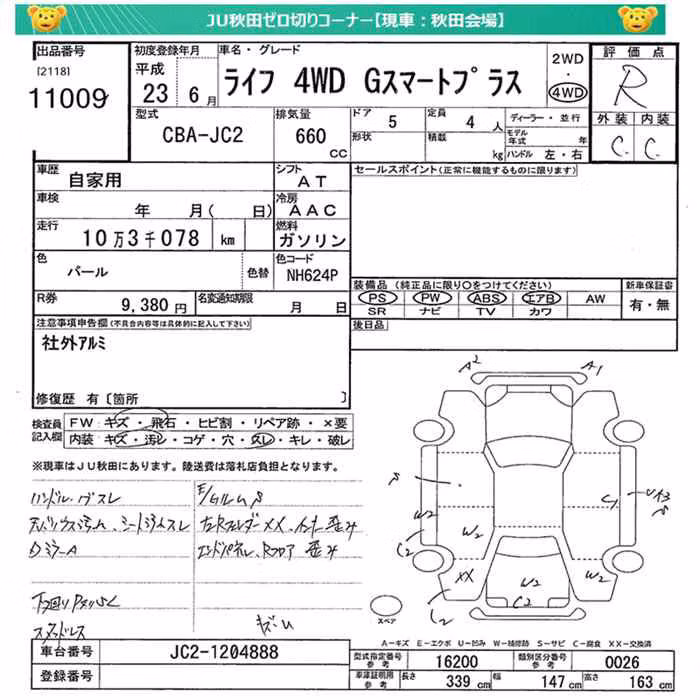 JU秋田ゼロ切りコーナー【現車：秋田会場】
出品番号 [2118] 11009
初度登録年月 平成 23 6 月
車名・グレード ライフ 4WD Gスマートプラス
2WD ・ 4WD
評価点 R
外装 内装
C. C.
型式 CBA-JC2
排気量 660 CC
ドア 5
定員 4 人
形状 積載 kg
ディーラー・並行
モデル年式 年
ハンドル 左・右
車歴 自家用
シフト AT
セールスポイント(正常に機能するものに限ります)
車検 年 月( 日)
冷房 AAC
走行 10万3千078 km
燃料 ガソリン
色 パール 色替
色コード NH624P
装備品 (純正品に限り○をつけてください)
新車保証書
PS PW ABS エアB AW
有・無
SR ナビ TV カワ
R券 9,380 円
名変通知期限 月 日
後日品
注意事項申告欄(不具合内容等は具体的に記入して下さい)
社外アルミ
修復歴 有〔箇所 〕
検査員記入欄
FW キズ・飛石・ヒビ割・リペア跡・×要
内装 キズ・汚レ・コゲ・穴・スレ・キレ・破レ
※現車はJU秋田にあります。陸送費は落札店負担となります。
ハンドル
A2 A1
W2 W2
C2
XX W2 W2
C2
スペア
A－キズ E－エクボ U－凹み W－補修跡 S－サビ C－腐食 XX－交換済
車台番号 JC2-1204888
登録番号
型式指定番号 参考 16200
類別区分番号 参考 0026
車庫証明用 参考 長さ 339 cm 幅 147 cm 高さ 163 cm